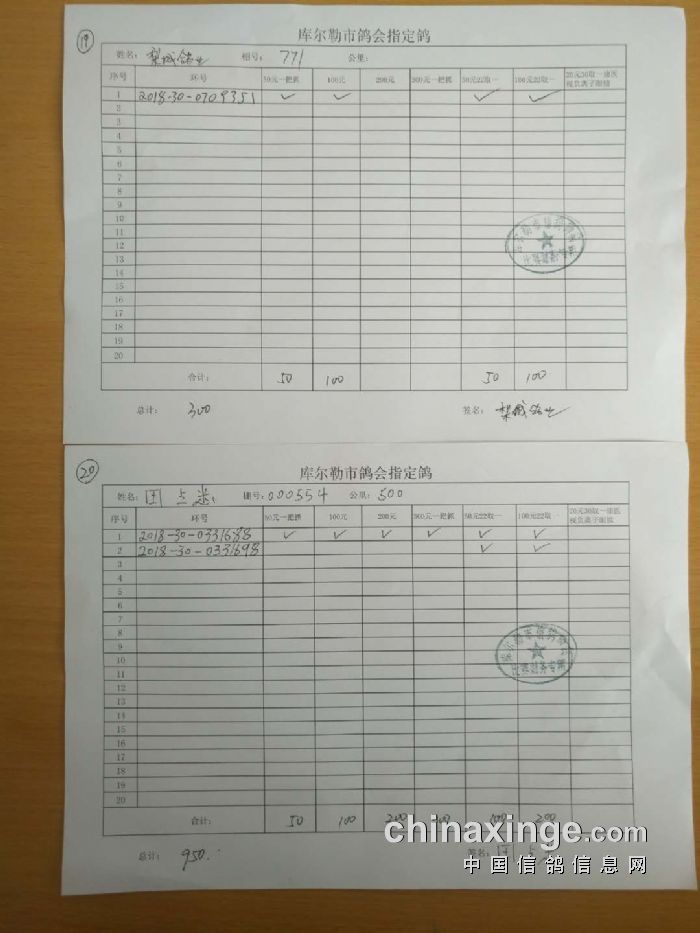 19
库尔勒市鸽会指定鸽
姓名: 梨城铭业 棚号: 771 公里:
序号 环号 50元一把抓 100元 200元 300元一把抓 50元22取一 100元22取一 20元30取一康医视负离子眼镜
1 2018-30-0709351 ✓ ✓ ✓ ✓
2
3
4
5
6
7
8
9
10
11
12
13
14
15
16
17
18
19
20
合计: 50 100 50 100
总计: 300 签名: 梨城铭业
20
库尔勒市鸽会指定鸽
姓名: 棚号: 000554 公里: 500
序号 环号 50元一把抓 100元 200元 300元一把抓 50元22取一 100元22取一 20元30取一康医视负离子眼镜
1 2018-30-0331688 ✓ ✓ ✓ ✓ ✓ ✓
2 2018-30-0331698 ✓ ✓
3
4
5
6
7
8
9
10
11
12
13
14
15
16
17
18
19
20
比赛财务专用
合计: 50 100 200 300 100 200
总计: 950. 签名:
chinaxinge.com
中国信鸽信息网